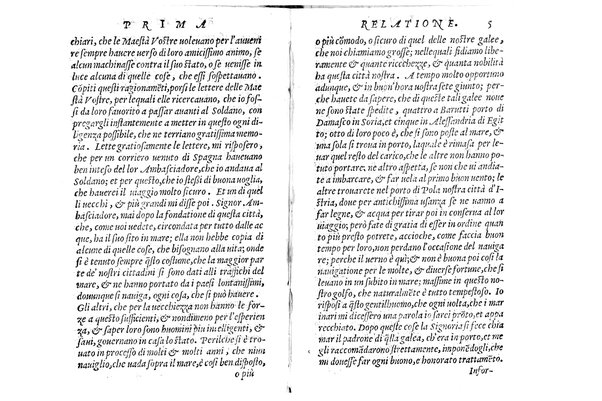 PRIMA
chiari, che le Maestà Vostre uoleuano per l'auueni
re sempre hauere uerso di loro amicissimo animo, se
alcun machinasse contra il suo stato, o se uenisse in
luce alcuna di quelle cose, che essi sospettauano.
Cōpiti questi ragionamēti, porsi le lettere delle Mae
stà Vostre, per lequali elle ricercauano, che io fos-
si da loro fauorito a passar auanti al Soldano, con
pregargli instantemente a metter in questo ogni di-
ligenza possibile, che ne terriano gratissima memo-
ria. Lette gratiosamente le lettere, mi risposero,
che per un corriero uenuto di Spagna haueuano
ben inteso del lor Ambasciadore, che io andaua al
Soldano; et per questo, che io stessi di buona uoglia,
che hauerei il uiaggio molto sicuro. Et un di quel
li uecchi, & più grandi mi disse poi. Signor Am-
basciadore, mai dopo la fondatione di questa città,
che, come uoi uedete, circondata per tutto dalle ac
que, ha il suo sito in mare; ella non hebbe copia di
alcune di quelle cose, che bisognano alla uita; onde
si è tenuto sempre q̄sto costume, che la maggior par
te de' nostri cittadini si sono dati alli traffichi del
mare, & ne hanno portato da i paesi lontanissimi,
dounque si nauiga, ogni cosa, che si può hauere.
Gli altri, che per la uecchiezza non hanno le for-
ze a questo sufficienti, & nondimeno per l'esperien
za, & saper loro sono huomini piu intelligenti, &
saui, gouernano in casa lo stato. Perilche si è tro-
uato in processo di molti & molti anni, che niun
nauiglio, che uada sopra il mare, è così ben disposto,
o più
RELATIONE. 5
o più cōmodo, o sicuro di quel delle nostre galee,
che noi chiamiamo grosse; nellequali fidiamo libe-
ramente & quante ricchezze, & quanta nobilità
ha questa città nostra. A tempo molto opportuno
adunque, & in buon'hora uostra sete giunto; per-
che hauete da sapere, che di queste tali galee noue
sono state spedite, quattro a Barutti porto di
Damasco in Soria, et cinque in Alessandria di Egit
to; otto di loro poco è, che si sono poste al mare, &
una sola si troua in porto, laquale è rimasa per le-
uar quel resto del carico, che le altre non hanno po
tuto portare. ne altro aspetta, se non che ui andia-
te a imbarcare, & far uela al primo buon uento; le
altre trouarete nel porto di Pola nostra città d'I-
stria, doue per antichissima usanza se ne uanno a
far legne, & acqua per tirar poi in conserua al lor
uiaggio; però fate di gratia di esser in ordine quan
to più presto potete, accioche, come faccia buon
tempo per loro, non perdano l'occasione del nauiga
re; perche il uerno è quì; & non è così possibile la
nauigatione per le molte, & diuerse fortune, che si
leuano in un subito in mare; massime in questo no-
stro golfo, che naturalmēte è tutto tempestoso. Io
risposi a q̄sto gentilhuomo, che ogni uolta, che i mar
inari mi dicessero una parola io sarei prōto, et appa
recchiato. Dopo queste cose la Signoria si fece chia
mar il padrone di q̄sta galea, ch'era in porto, et ne
gli raccomādarono strettamente, imponēdogli, che
mi douesse far ogni buono, e honorato trattamēto.
Infor-